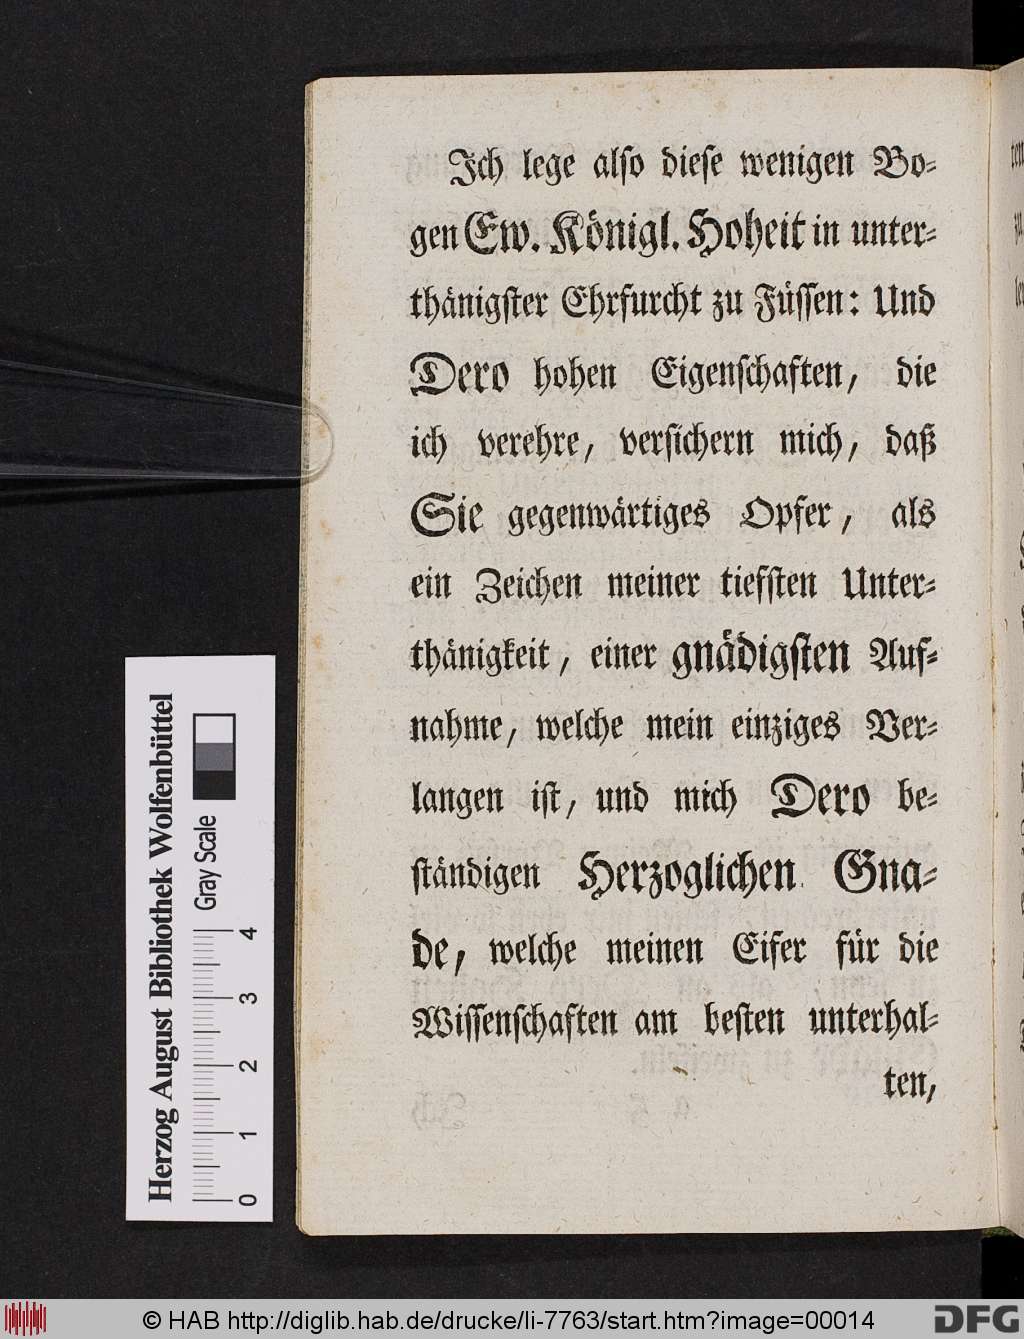 Ich lege also diese wenigen Bo-
gen Ew. Königl. Hoheit in unter-
thänigster Ehrfurcht zu Füssen: Und
Dero hohen Eigenschaften, die
ich verehre, versichern mich, daß
Sie gegenwärtiges Opfer, als
ein Zeichen meiner tiefsten Unter-
thänigkeit, einer gnädigsten Auf-
nahme, welche mein einziges Ver-
langen ist, und mich Dero be-
ständigen Herzoglichen Gna-
de, welche meinen Eifer für die
Wissenschaften am besten unterhal-
ten,
Herzog August Bibliothek Wolfenbüttel
Gray Scale
0 1 2 3 4
© HAB http://diglib.hab.de/drucke/li-7763/start.htm?image=00014
DFG